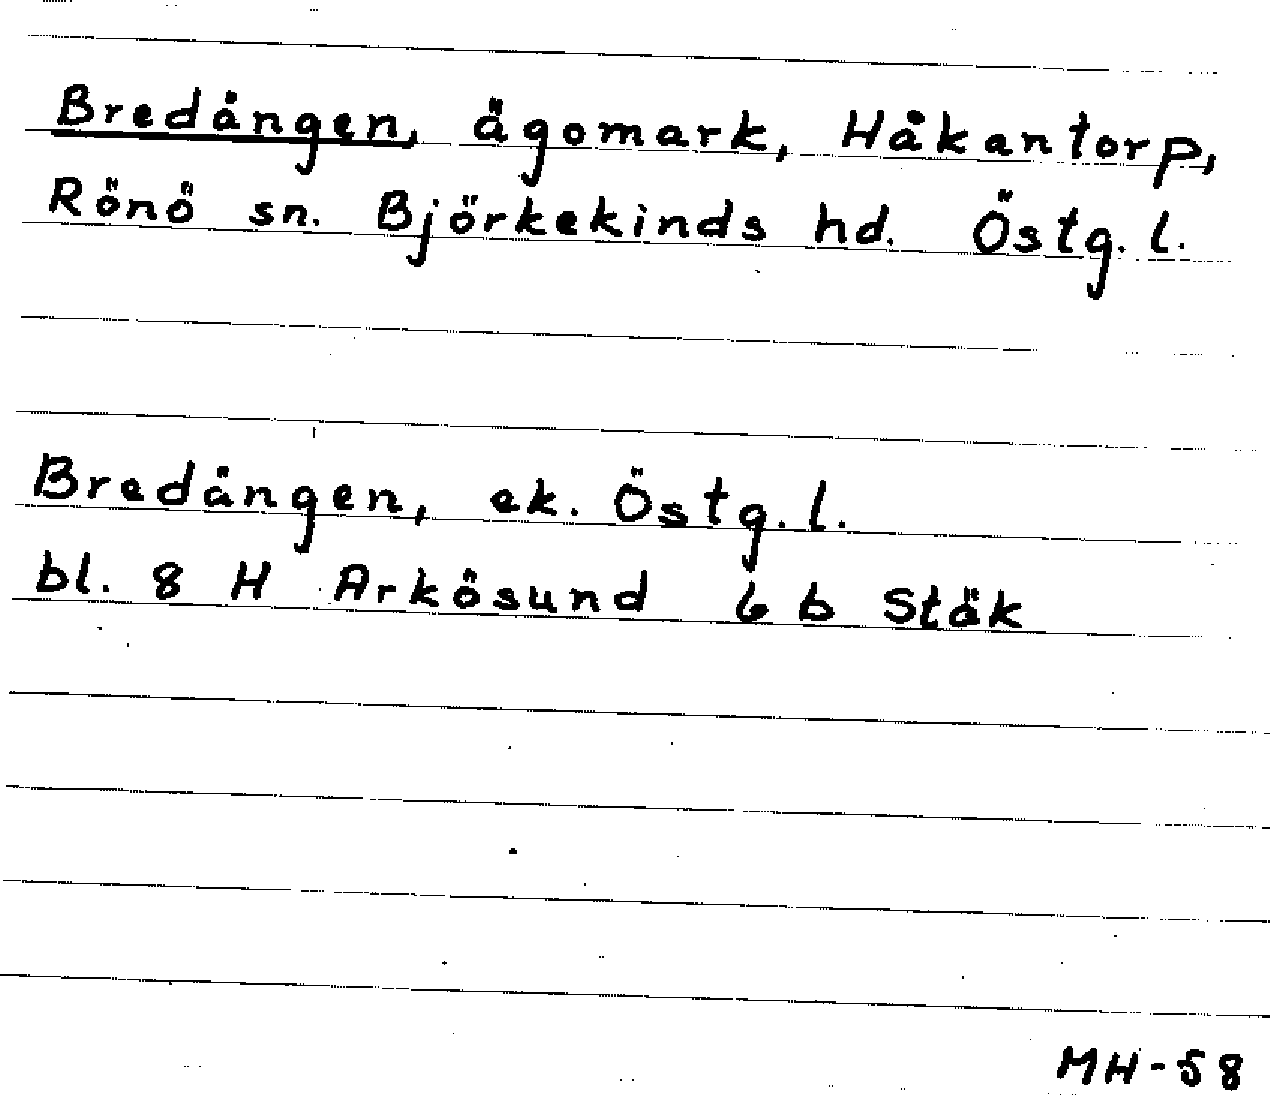 Bredången, ägomark, Håkantorp,
Rönö sn. Björkekinds hd. Östg. l.
Bredången, ek. Östg. l.
bl. 8 H Arkösund 6 b Stäk
MH-58